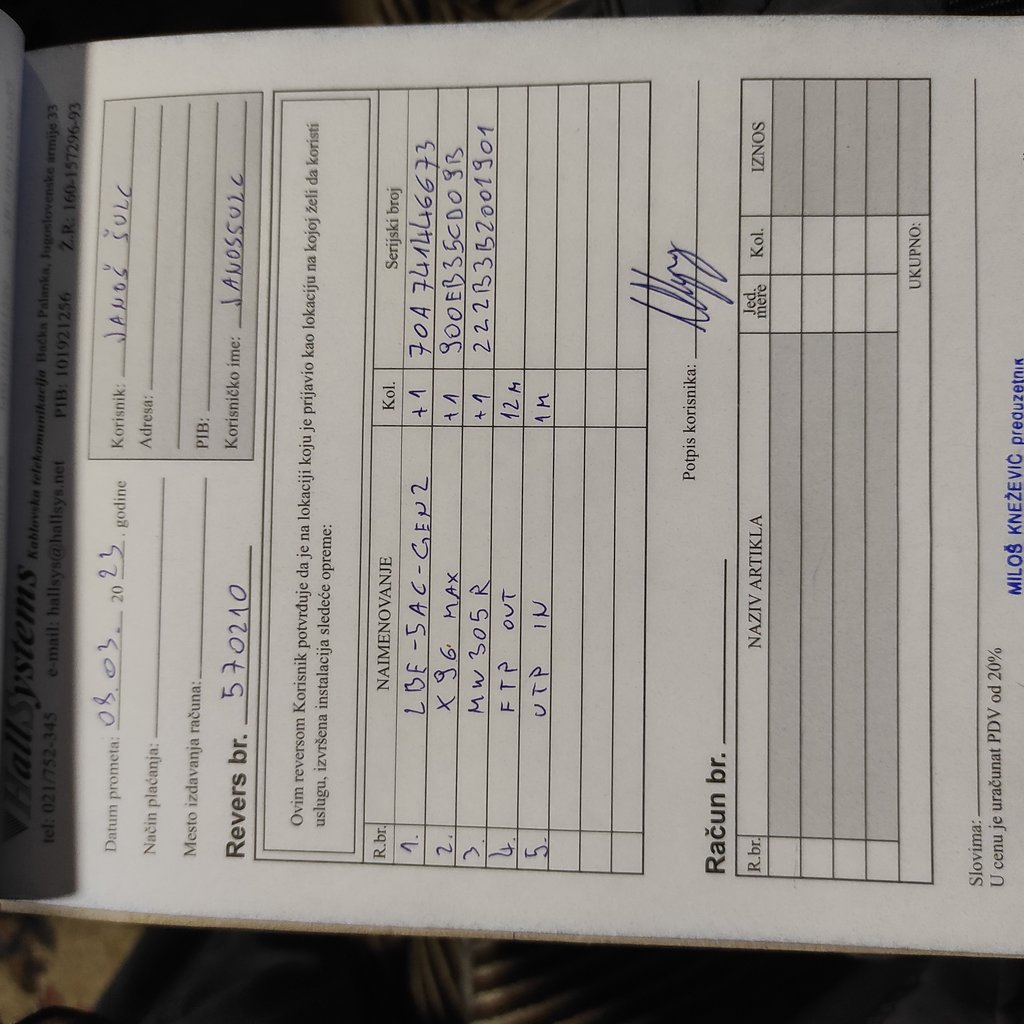 HallSystems Kablovska telekomunikacija Bačka Palanka, Jugoslovenske armije 33
tel: 021/752-345 e-mail: hallsys@hallsys.net PIB: 101921256 Ž.R: 160-157296-93
Datum prometa: 03.03. 20 23. godine
Način plaćanja:
Mesto izdavanja računa:
Revers br. 570210
Korisnik: JANOŠ ŠULC
Adresa:
PIB:
Korisničko ime: JANOSSULC
Ovim reversom Korisnik potvrđuje da je na lokaciji koju je prijavio kao lokaciju na kojoj želi da koristi
uslugu, izvršena instalacija sledeće opreme:
R.br. NAIMENOVANJE Kol. Serijski broj
1. LBE-5AC-GEN2 +1 70A741446673
2. X96 MAX +1 900EB35CD09B
3. MW305R +1 222B3B2001901
4. FTP OUT 12M
5. UTP IN 1M
Potpis korisnika:
Račun br.
R.br. NAZIV ARTIKLA Jed. mere Kol. IZNOS
UKUPNO:
Slovima:
U cenu je uračunat PDV od 20%
MILOŠ KNEŽEVIĆ preduzetnik